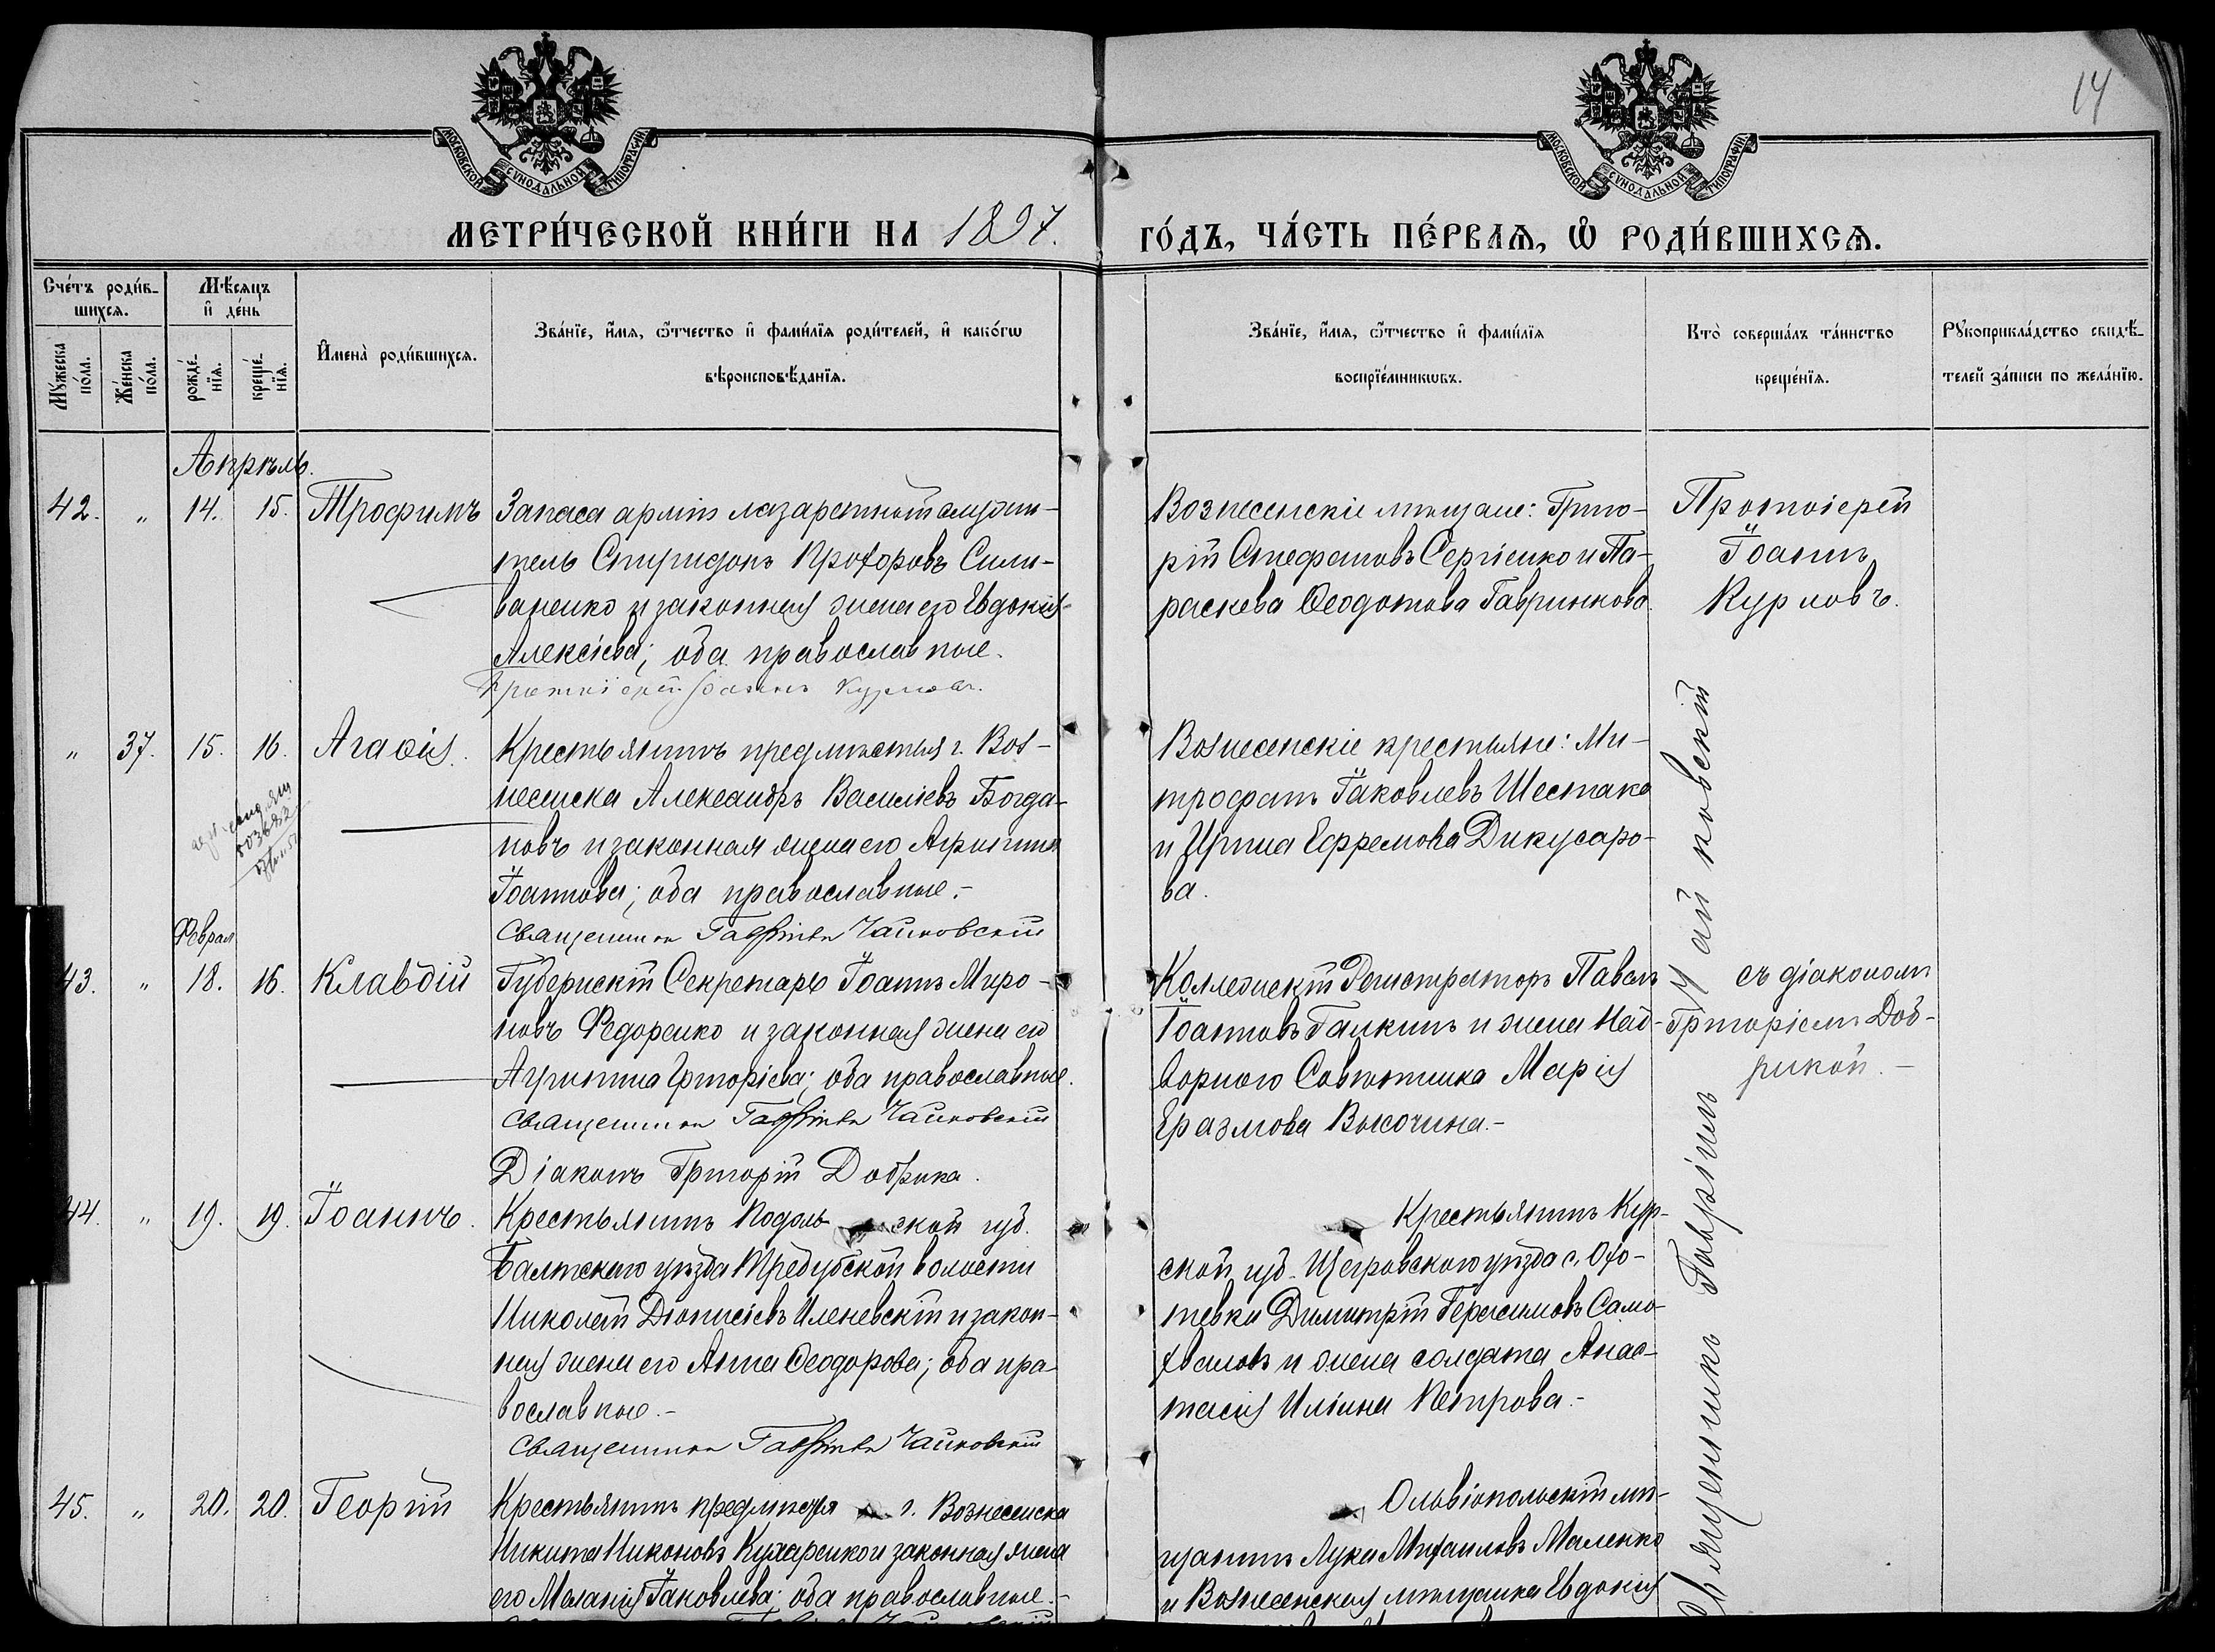 14
МОСКОВСКОЙ СѴНОДАЛЬНОЙ ТИПОГРАФІИ
МОСКОВСКОЙ СѴНОДАЛЬНОЙ ТИПОГРАФІИ
МЕТРИ́ЧЕСКОЙ КНИ́ГИ НА 1897. ГО́ДЪ, ЧА́СТЬ ПЕ́РВАѦ, Ѡ҆ РОДИ́ВШИХСѦ.
Сче́тъ роди́в-
шихсѧ.
Мꙋ́жеска по́ла.
Же́нска по́ла.
Мѣ́сѧцъ
и҆ де́нь
рожде́-
нїѧ.
креще́-
нїѧ.
И҆мена̀ роди́вшихсѧ.
Зва́нїе, и҆́мѧ, ѻ҆́тчество и҆ фами́лїѧ роди́телей, и҆ како́гѡ
вѣроисповѣ́данїѧ.
Зва́нїе, и҆́мѧ, ѻ҆́тчество и҆ фами́лїѧ
воспрїе́мникѡвъ.
Кто̀ соверша́лъ та́инство
креще́нїѧ.
Рꙋкоприкла́дство свидѣ́-
телей за́писи по жела́нїю.
Апрѣль.
42. " 14. 15. Трофимъ
Запаса арміи лазаретный служи-
тель Спиридонъ Прохоровъ Сили-
ваненко и законная жена его Евдокія
Алексіева; оба православные.
Протоіерей Іоаннъ Курловъ.
Вознесенскіе мѣщане: Григо-
рій Стефановъ Сергіенко и Па-
раскева Ѳеодотова Гавринкова.
Протоіерей
Іоаннъ
Курловъ.
" 37. 15. 16. Агаѳія.
Крестьянинъ предмѣстья г. Воз-
несенска Александръ Васильевъ Богда-
новъ и законная жена его Агрипина
Іоаннова; оба православные.-
Священникъ Гавріилъ Чайковскій
Вознесенскіе крестьяне: Ми-
трофанъ Іаковлевъ Шестако
и Ирина Ефремова Дикусаро-
ва.
Феврал
43. " 18. 16. Клавдій
Губернскій Секретарь Іоаннъ Миро-
новъ Федоренко и законная жена его
Агрипина Григоріева; оба православные.
Священникъ Гавріилъ Чайковскій
Діаконъ Григорій Добрика.
Коллежскій Регистраторъ Павелъ
Іоанновъ Галкинъ и жена Над-
ворного Совѣтника Марія
Еразмова Высочина.-
Священникъ Гавріилъ Чайковскій
съ діакономъ
Григоріемъ Доб-
рикой.-
44. " 19. 19. Іоаннъ.
Крестьянинъ Подольской губ.
Балтскаго уѣзда Тредубской волости
Николай Діонисіевъ Иленевскій и закон-
ная жена его Анна Ѳеодорова; оба пра-
вославные.-
Священникъ Гавріилъ Чайковскій
Крестьянинъ Кур-
ской губ. Щегровского уѣзда с. Охо-
тевки Димитрій Герасимовъ Само-
хваловъ и жена солдата Анас-
тасія Ильина Петрова.-
45. " 20. 20. Георгій
Крестьянинъ предмѣстья г. Вознесенска
Никита Никоновъ Кухаренко и законная жена
его Меланія Іаковлева; оба православные.-
Ольвіопольскій мѣ-
щанинъ Лука Михаиловъ Маленко
и Вознесенская мѣщанка Евдокія